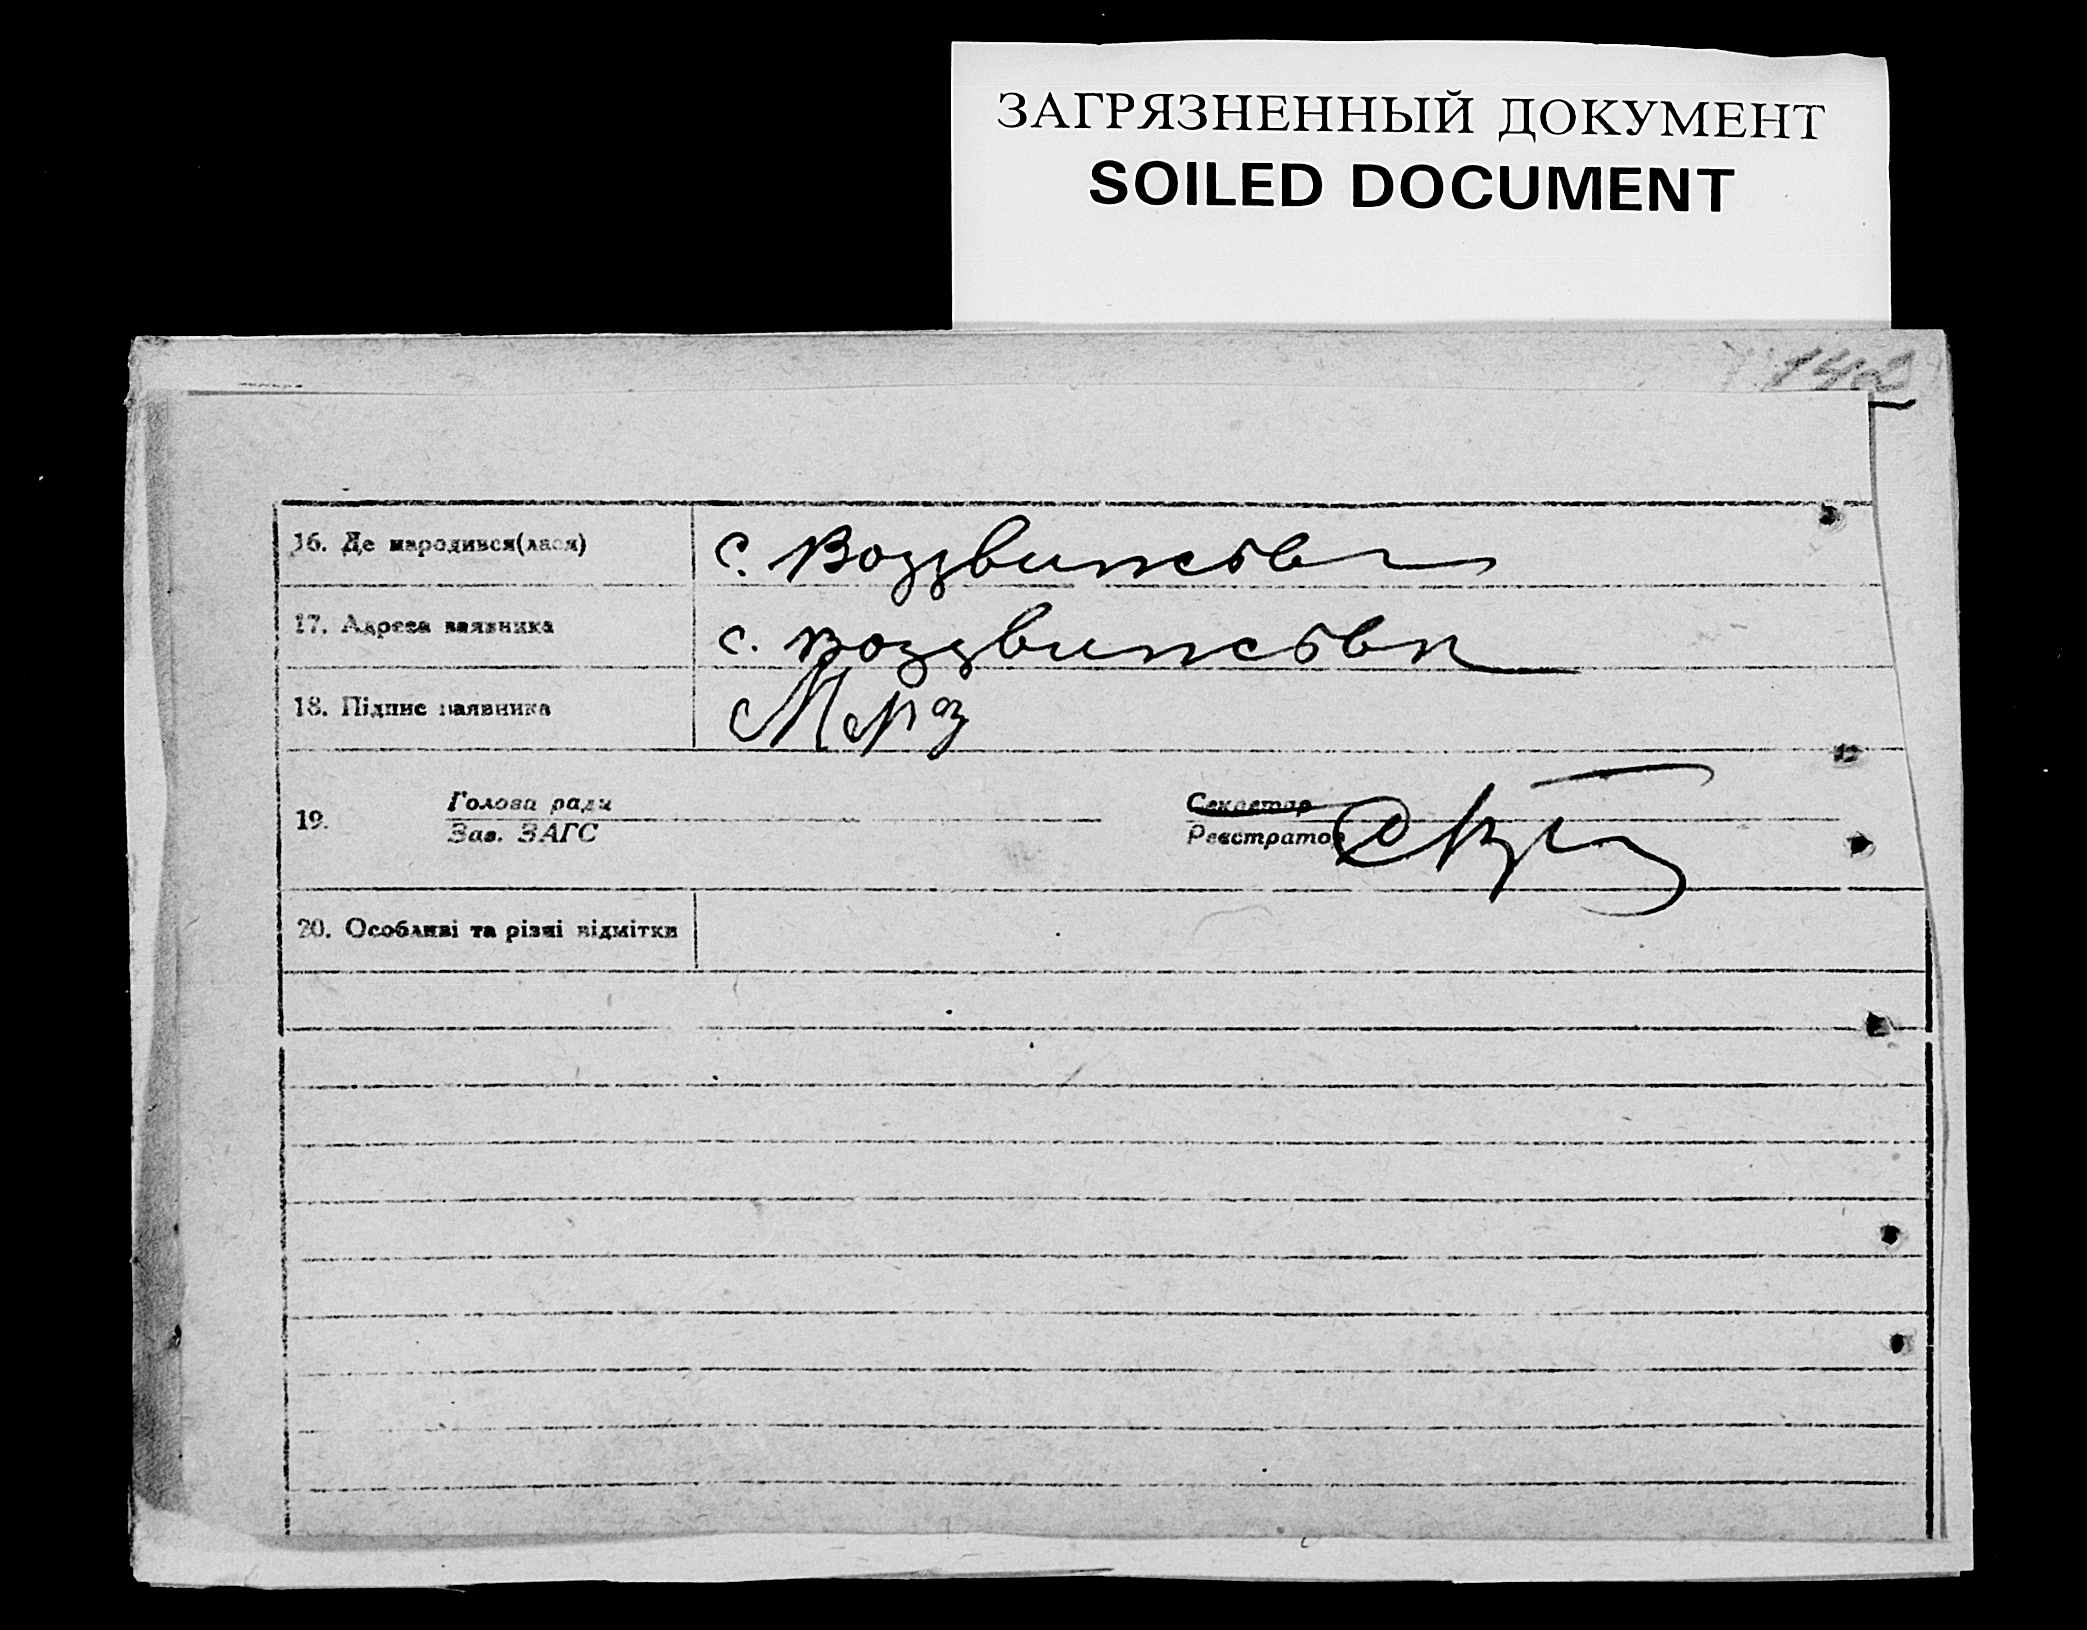 ЗАГРЯЗНЕННЫЙ ДОКУМЕНТ
SOILED DOCUMENT
142
16. Де народився(лася) с. Воздвиженськ
17. Адреса заявника с. Воздвиженськ
18. Підпис заявника Мороз
19. Голова ради Секретар
Зав. ЗАГС Реєстратор
20. Особливі та різні відмітки